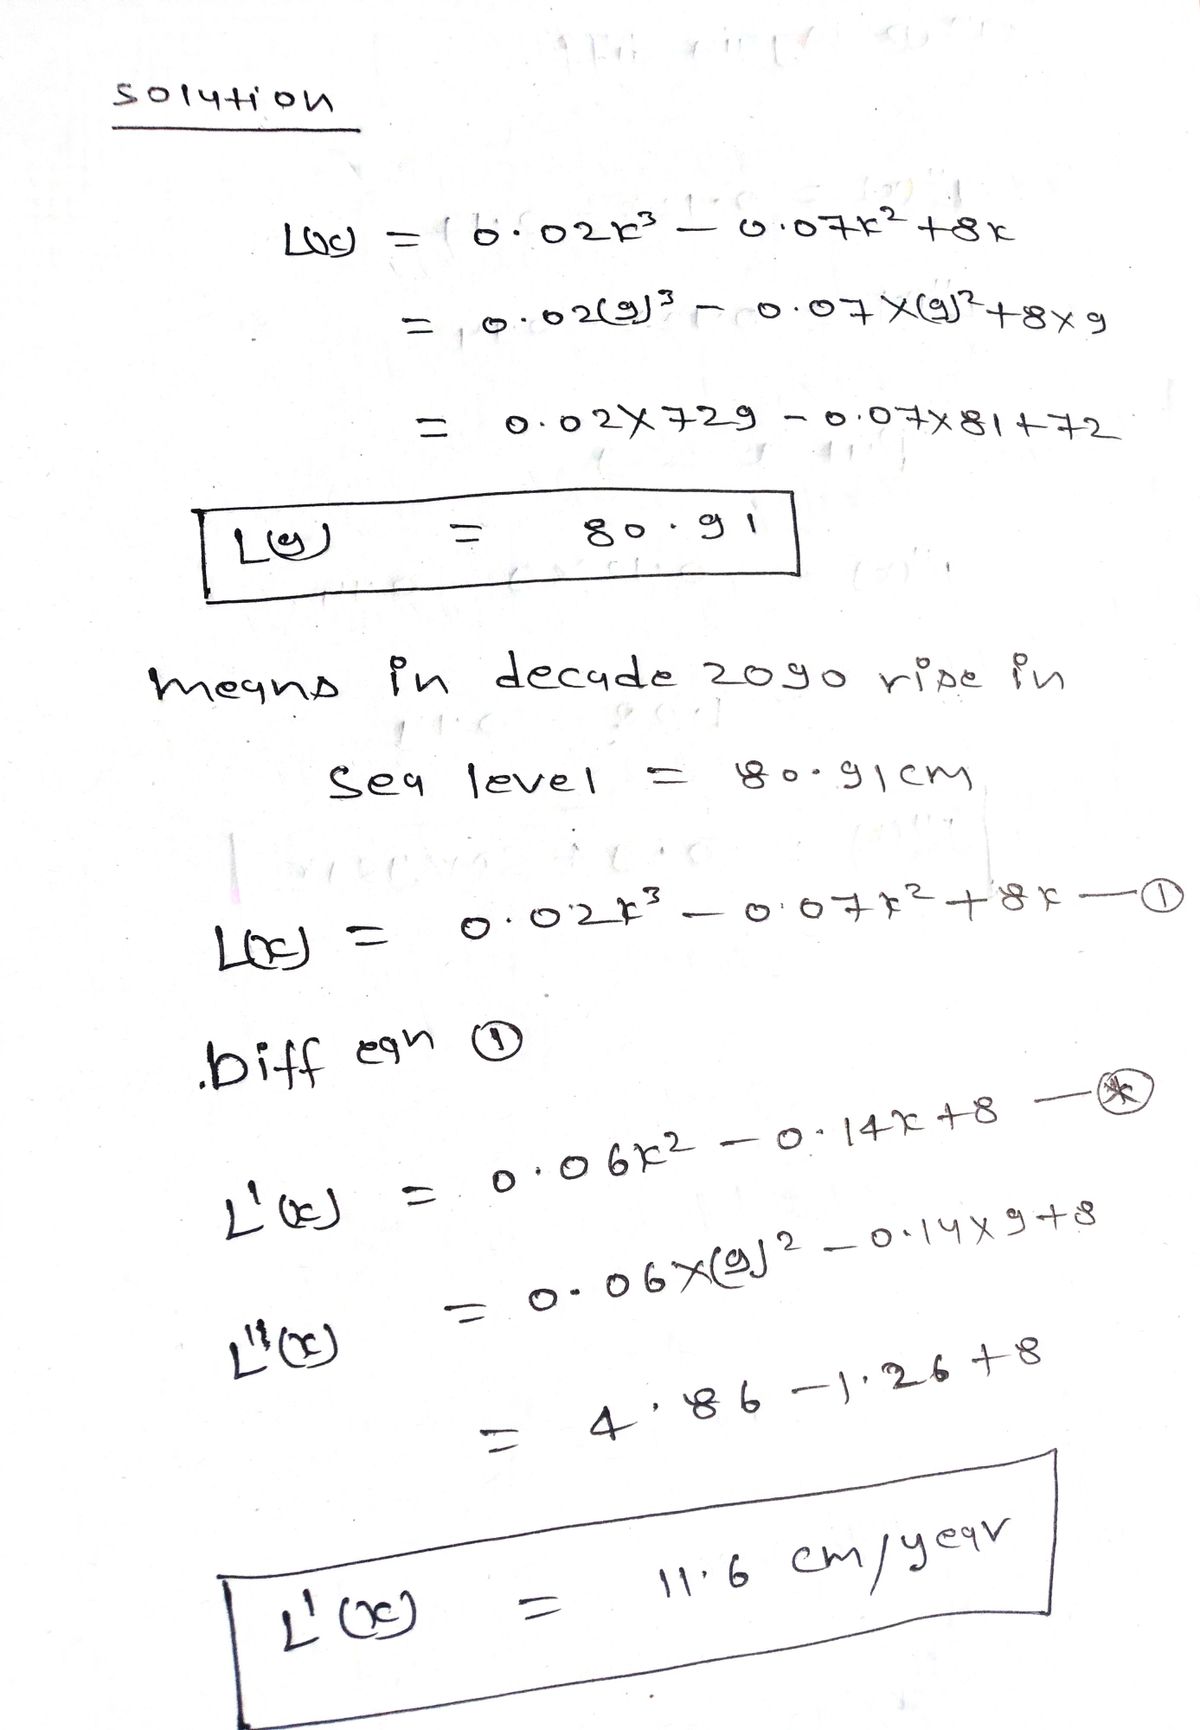 solution
L(x) = 0.02x³ – 0.07x² + 8x
= 0.02(9)³ – 0.07×(9)² + 8×9
= 0.02×729 – 0.07×81+72
L(9) = 80.91
means in decade 2090 rise in
sea level = 80.91cm
L(x) = 0.02x³ – 0.07x² + 8x — ①
Diff eqn ①
L'(x) = 0.06x² – 0.14x + 8 — ⊛
L''(x) = 0.06×(9)² – 0.14×9+8
= 4.86 – 1.26 + 8
L'(x) = 11.6 cm/year